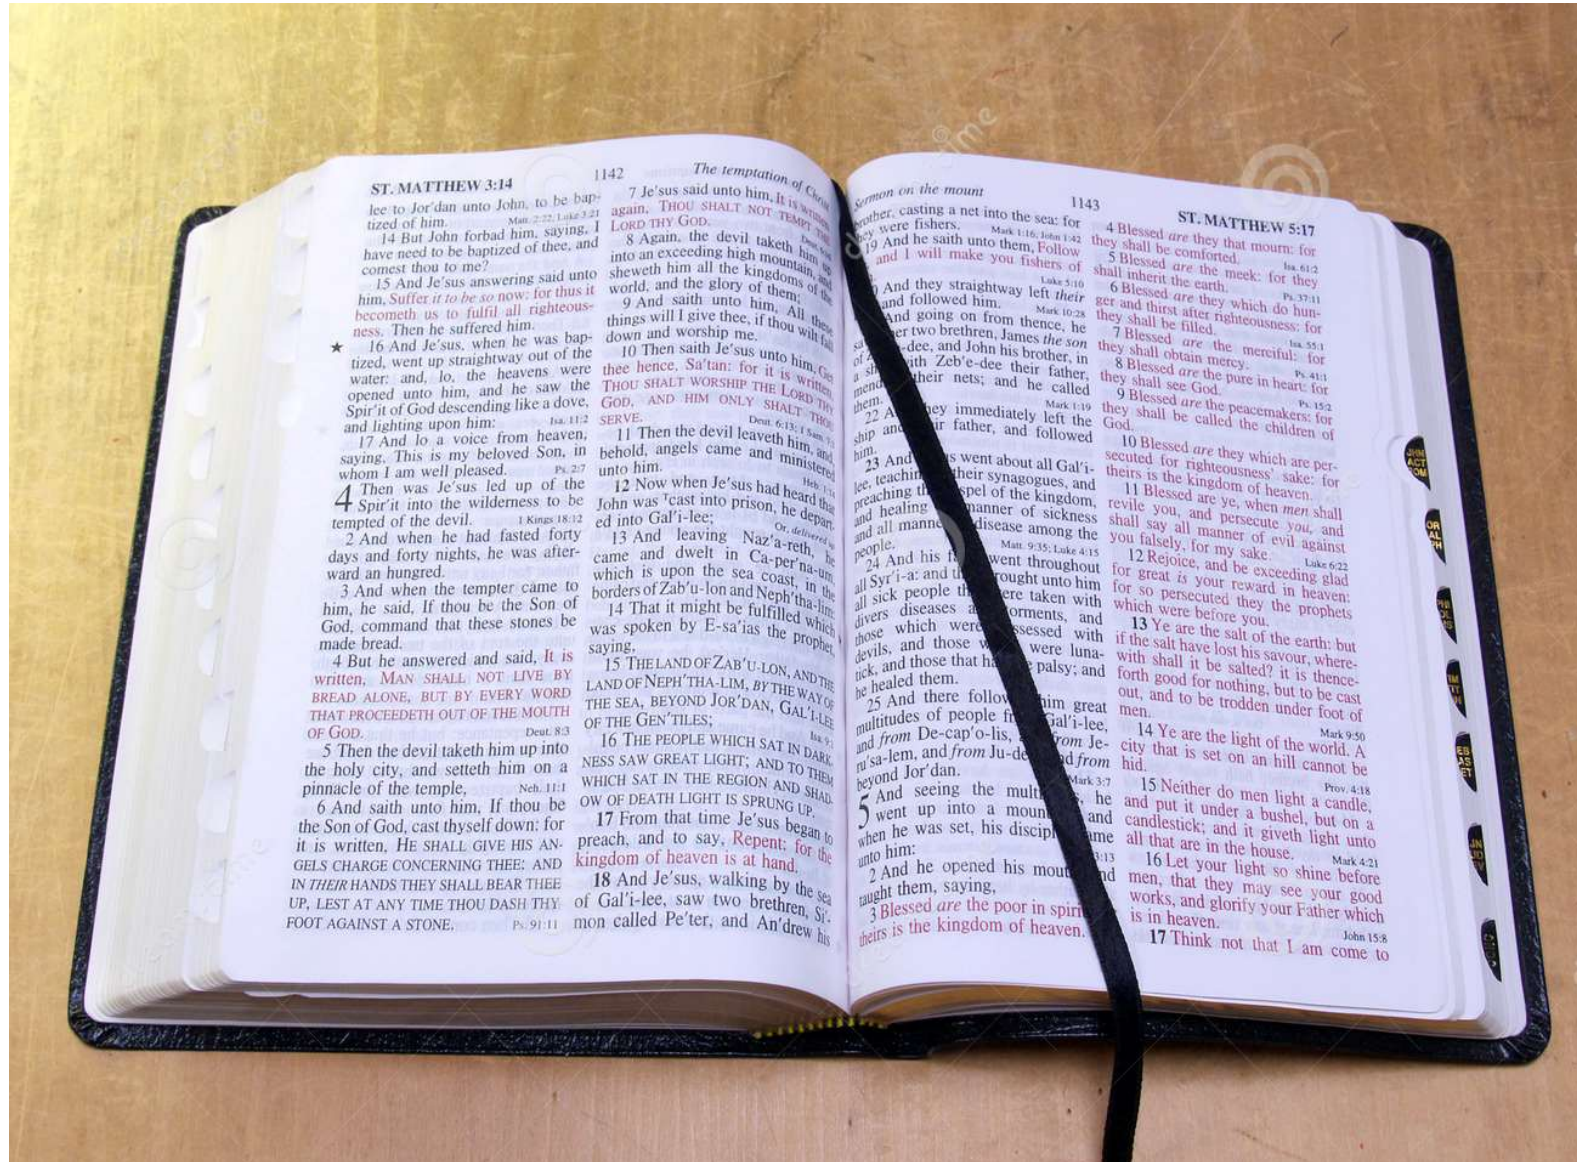 ST. MATTHEW 3:14
1142
The temptation of Christ
lee to Jor'dan unto John, to be bap-
tized of him. Matt. 2:22; Luke 3:21
14 But John forbad him, saying, I
have need to be baptized of thee, and
comest thou to me?
15 And Je'sus answering said unto
him, Suffer it to be so now: for thus it
becometh us to fulfil all righteous-
ness. Then he suffered him.
★ 16 And Je'sus, when he was bap-
tized, went up straightway out of the
water: and, lo, the heavens were
opened unto him, and he saw the
Spir'it of God descending like a dove,
and lighting upon him: Isa. 11:2
17 And lo a voice from heaven,
saying, This is my beloved Son, in
whom I am well pleased. Ps. 2:7
4 Then was Je'sus led up of the
Spir'it into the wilderness to be
tempted of the devil. 1 Kings 18:12
2 And when he had fasted forty
days and forty nights, he was after-
ward an hungred.
3 And when the tempter came to
him, he said, If thou be the Son of
God, command that these stones be
made bread.
4 But he answered and said, It is
written, MAN SHALL NOT LIVE BY
BREAD ALONE, BUT BY EVERY WORD
THAT PROCEEDETH OUT OF THE MOUTH
OF GOD. Deut. 8:3
5 Then the devil taketh him up into
the holy city, and setteth him on a
pinnacle of the temple, Neh. 11:1
6 And saith unto him, If thou be
the Son of God, cast thyself down: for
it is written, HE SHALL GIVE HIS AN-
GELS CHARGE CONCERNING THEE: AND
IN THEIR HANDS THEY SHALL BEAR THEE
UP, LEST AT ANY TIME THOU DASH THY
FOOT AGAINST A STONE. Ps. 91:11
7 Je'sus said unto him, It is written
again, THOU SHALT NOT TEMPT THE
LORD THY GOD. Deut.
8 Again, the devil taketh him up
into an exceeding high mountain, and
sheweth him all the kingdoms of the
world, and the glory of them;
9 And saith unto him, All these
things will I give thee, if thou wilt fall
down and worship me.
10 Then saith Je'sus unto him, Get
thee hence, Sa'tan: for it is written,
THOU SHALT WORSHIP THE LORD THY
GOD, AND HIM ONLY SHALT THOU
SERVE. Deut. 6:13; 1 Sam. 7:3
11 Then the devil leaveth him, and,
behold, angels came and ministered
unto him. Heb. 1:14
12 Now when Je'sus had heard that
John was cast into prison, he depart-
ed into Gal'i-lee; Or, delivered up
13 And leaving Naz'a-reth, he
came and dwelt in Ca-per'na-um,
which is upon the sea coast, in the
borders of Zab'u-lon and Neph'tha-lim:
14 That it might be fulfilled which
was spoken by E-sa'ias the prophet,
saying,
15 THE LAND OF ZAB'U-LON, AND THE
LAND OF NEPH'THA-LIM, BY THE WAY OF
THE SEA, BEYOND JOR'DAN, GAL'I-LEE
OF THE GEN'TILES; Isa. 9:1
16 THE PEOPLE WHICH SAT IN DARK-
NESS SAW GREAT LIGHT; AND TO THEM
WHICH SAT IN THE REGION AND SHAD-
OW OF DEATH LIGHT IS SPRUNG UP.
17 From that time Je'sus began to
preach, and to say, Repent: for the
kingdom of heaven is at hand.
18 And Je'sus, walking by the sea
of Gal'i-lee, saw two brethren, Si'-
mon called Pe'ter, and An'drew his
Sermon on the mount
1143
ST. MATTHEW 5:17
brother, casting a net into the sea: for
they were fishers. Mark 1:16; John 1:42
19 And he saith unto them, Follow
and I will make you fishers of
Luke 5:10
And they straightway left their
and followed him. Mark 10:28
And going on from thence, he
two brethren, James the son
of and John his brother, in
a with Zeb'e-dee their father,
their nets; and he called
them. Mark 1:19
22 they immediately left the
ship and father, and followed
him.
23 And went about all Gal'i-
lee, teaching their synagogues, and
preaching of the kingdom,
and healing manner of sickness
and all manner disease among the
people. Matt. 9:35; Luke 4:15
24 And his went throughout
all Syr'i-a: and brought unto him
all sick people were taken with
divers diseases torments, and
those which were with
devils, and those were luna-
tick, and those that palsy; and
he healed them.
25 And there him great
multitudes of people Gal'i-lee,
and from De-cap'o-lis, from Je-
ru'sa-lem, and from and from
beyond Jor'dan. Mark 3:7
5 And seeing the he
went up into a and
when he was set, his
unto him: 3:13
2 And he opened his and
taught them, saying,
3 Blessed are the poor in
theirs is the kingdom of heaven.
4 Blessed are they that mourn: for
they shall be comforted. Isa. 61:2
5 Blessed are the meek: for they
shall inherit the earth. Ps. 37:11
6 Blessed are they which do hun-
ger and thirst after righteousness: for
they shall be filled. Isa. 55:1
7 Blessed are the merciful: for
they shall obtain mercy. Ps. 41:1
8 Blessed are the pure in heart: for
they shall see God. Ps. 15:2
9 Blessed are the peacemakers: for
they shall be called the children of
God.
10 Blessed are they which are per-
secuted for righteousness' sake: for
theirs is the kingdom of heaven.
11 Blessed are ye, when men shall
revile you, and persecute you, and
shall say all manner of evil against
you falsely, for my sake. Luke 6:22
12 Rejoice, and be exceeding glad
for great is your reward in heaven:
for so persecuted they the prophets
which were before you.
13 Ye are the salt of the earth: but
if the salt have lost his savour, where-
with shall it be salted? it is thence-
forth good for nothing, but to be cast
out, and to be trodden under foot of
men. Mark 9:50
14 Ye are the light of the world. A
city that is set on an hill cannot be
hid. Prov. 4:18
15 Neither do men light a candle,
and put it under a bushel, but on a
candlestick; and it giveth light unto
all that are in the house. Mark 4:21
16 Let your light so shine before
men, that they may see your good
works, and glorify your Father which
is in heaven. John 15:8
17 Think not that I am come to
JHN
ACT